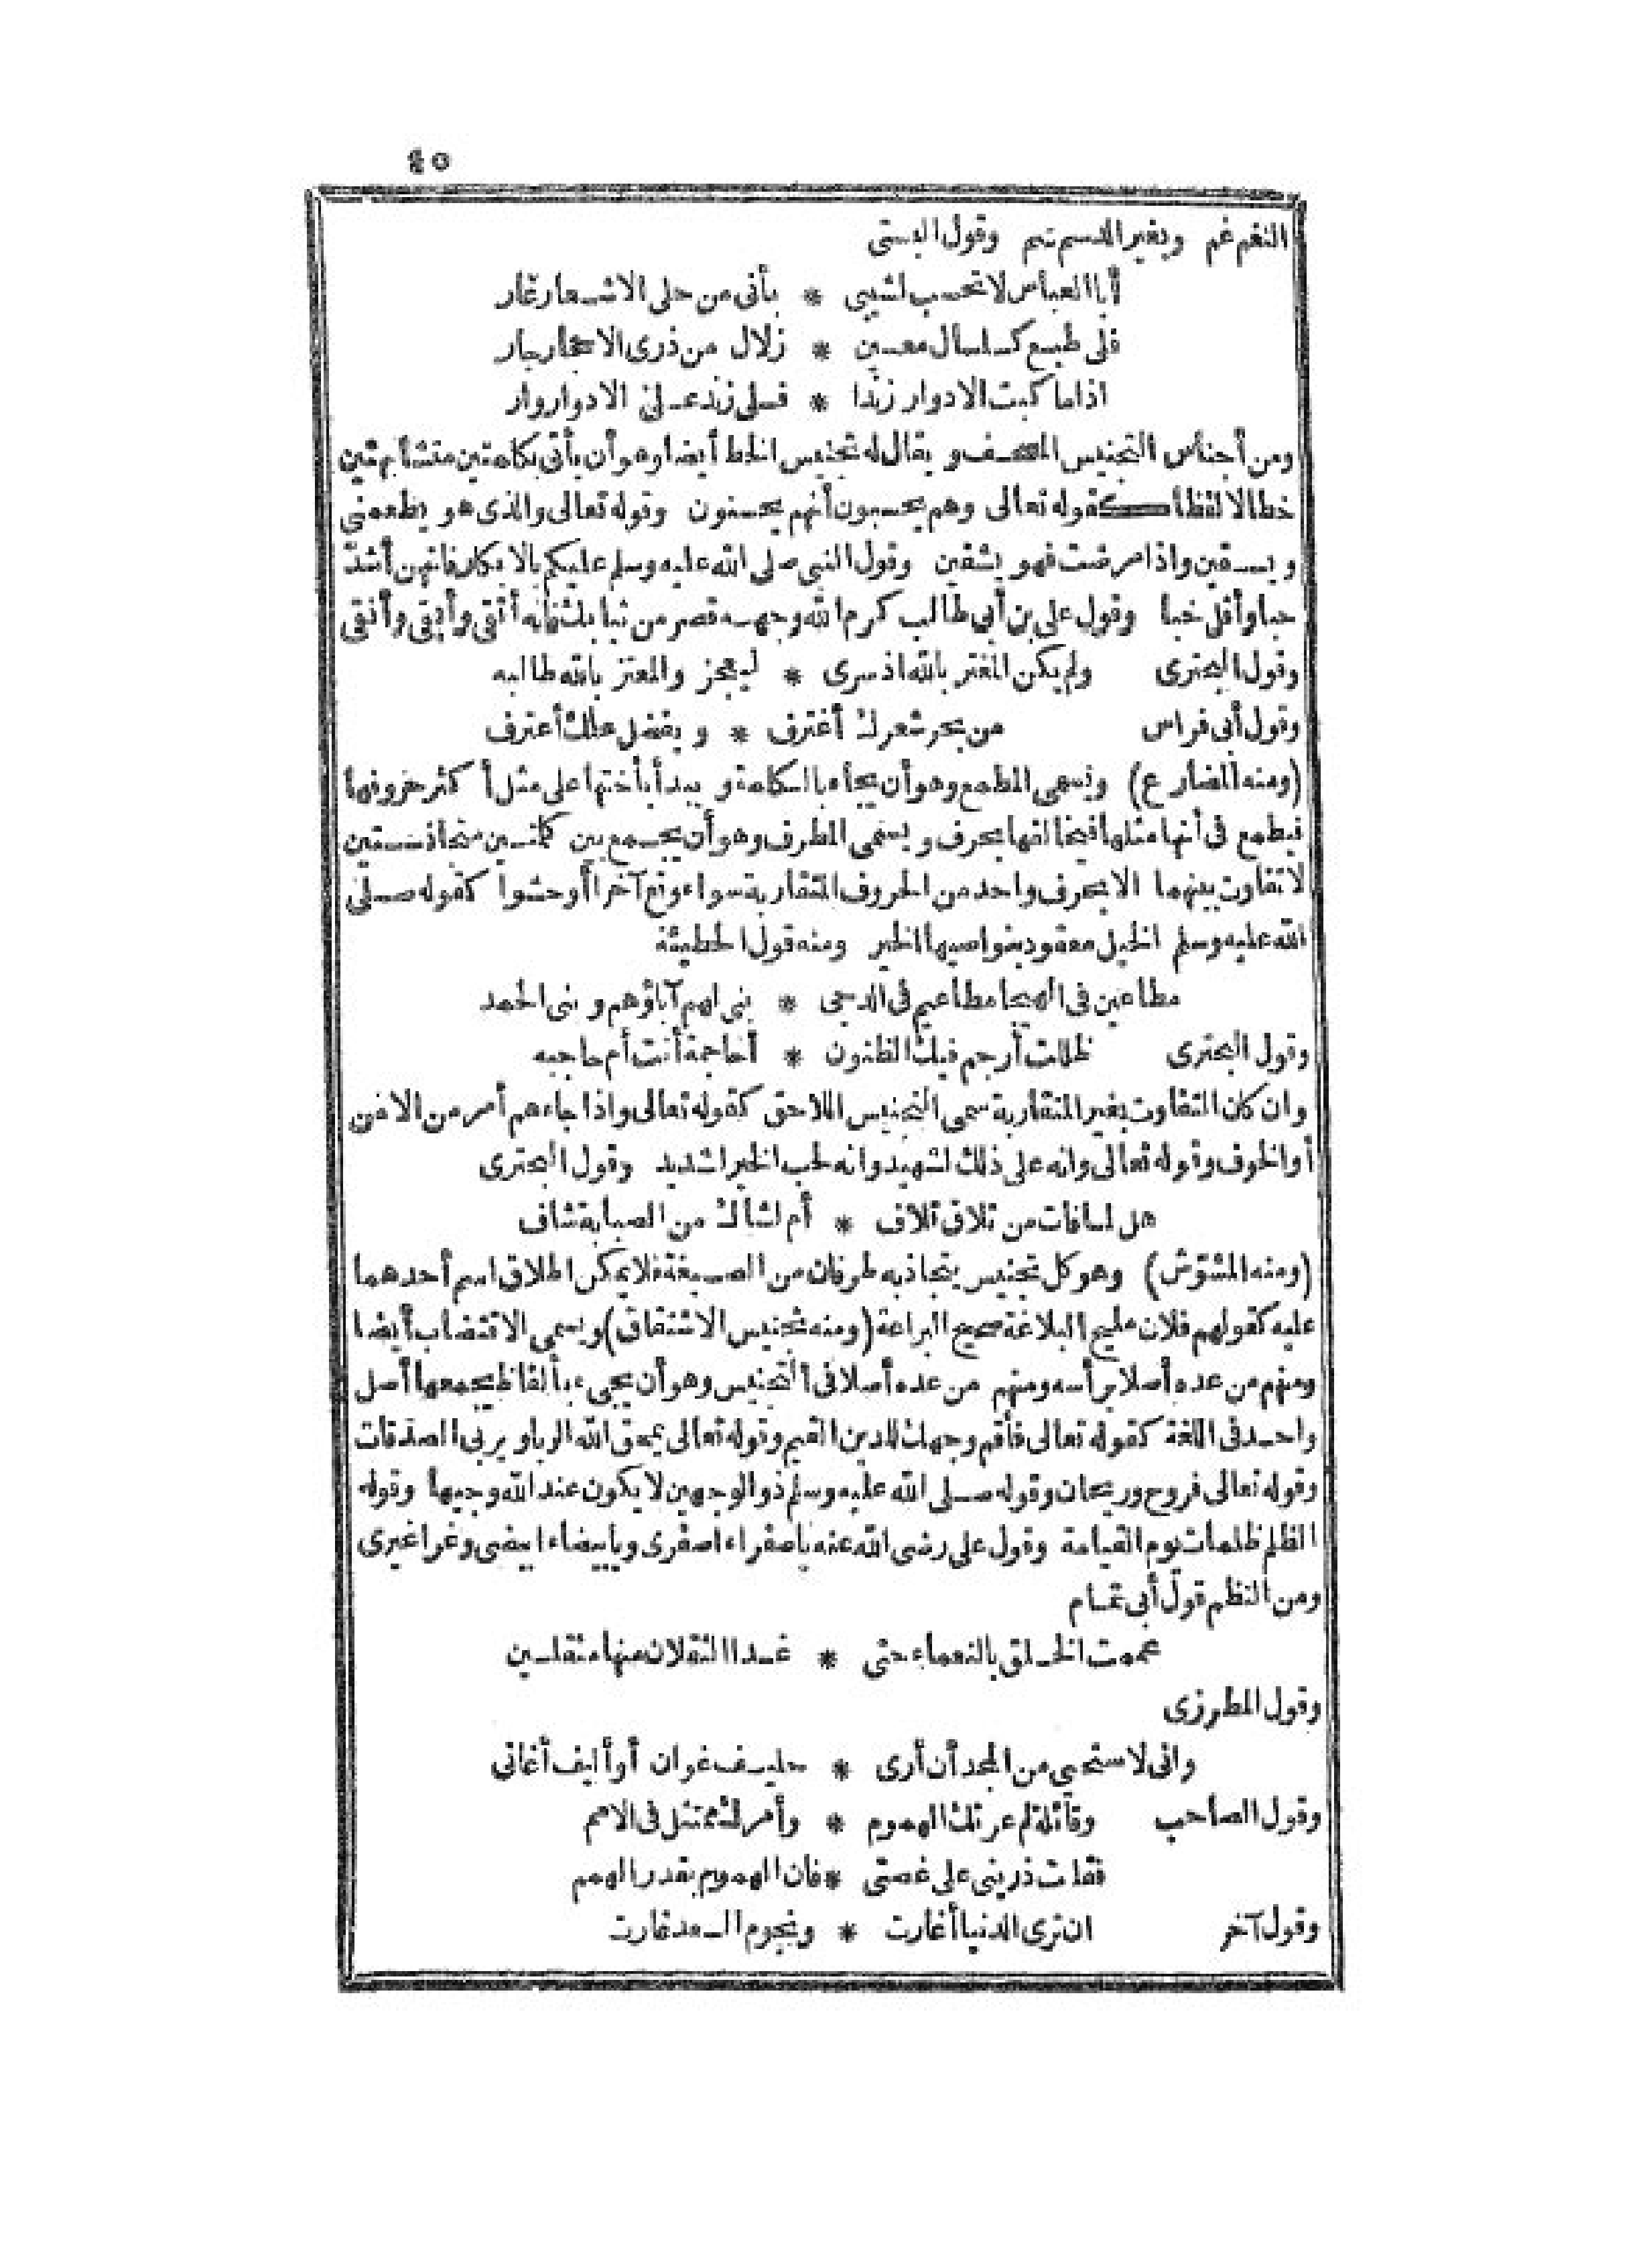 ٤٥
النغم غم وبغير الدسم سم وقول البستى
أبا العباس لا تحسب لشيبى * بأنى من حلى الاشعار عار
فلى طبع كسلسال معين * زلال من ذرى الاحجار جار
اذا ما كبت الادوار زندا * فلى زند على الادوار وار
ومن أجناس التجنيس المصحف ويقال له تجنيس الخط أيضا وهو أن يأتى بكلمتين متشابهتين
خطا لا لفظا كقوله تعالى وهم يحسبون أنهم يحسنون وقوله تعالى والذى هو يطعمنى
ويسقين واذا مرضت فهو يشفين وقول النبى صلى الله عليه وسلم عليكم بالابكار فانهن أشدّ
حبا وأقل خبا وقول على بن أبى طالب كرم الله وجهه قصر من ثيابك فانه أتقى وأبقى وأنقى
وقول البحترى ولم يكن المغتر بالله اذ سرى * ليعجز والمعتز بالله طالبه
وقول أبى فراس من بحر شعرك أغترف * وبفضل علمك أعترف
(ومنه المضارع) ويسمى المطمع وهو أن يجاء بالكلمة ويبدأ بأختها على مثل أكثر حروفها
فيطمع فى أنها مثلها فيخالفها بحرف ويسمى المطرف وهو أن يجمع بين كلمتين متجانستين
لا تفاوت بينهما الا بحرف واحد من الحروف المتقاربة سواء وقع آخرا أو حشوا كقوله صلى
الله عليه وسلم الخيل معقود بنواصيها الخير ومنه قول الحطيئة
مطاعين فى الهيجا مطاعيم فى الدجى * بنى لهم آباؤهم وبنى الجد
وقول البحترى ظللت أرجم فيك الظنون * أحاجمة أنت أم حاجبه
وان كان التفاوت بغير المتقاربة سمى التجنيس اللاحق كقوله تعالى واذا جاءهم أمر من الامن
أو الخوف وقوله تعالى وانه على ذلك لشهيد وانه لحب الخير لشديد وقول البحترى
هل لما فات من تلاق تلاف * أم لشاك من الصبابة شاف
(ومنه المشوّش) وهو كل تجنيس يتجاذبه طرفان من الصيغة فلا يمكن اطلاق اسم أحدهما
عليه كقولهم فلان مليح البلاغة صحيح البراعة (ومنه تجنيس الاشتقاق) ويسمى الاقتضاب أيضا
ومنهم من عده أصلا برأسه ومنهم من عده أصلا فى التجنيس وهو أن يجىء بألفاظ يجمعها أصل
واحد فى اللغة كقوله تعالى فأقم وجهك للدين القيم وقوله تعالى يمحق الله الربا ويربى الصدقات
وقوله تعالى فروح وريحان وقوله صلى الله عليه وسلم ذو الوجهين لا يكون عند الله وجيها وقوله
الظلم ظلمات يوم القيامة وقول على رضى الله عنه يا صفراء اصفرى ويا بيضاء ابيضى وغرا غيرى
ومن النظم قول أبى تمام
عممت الخلق بالنعماء حتى * غدا الثقلان منها مثقلين
وقول المطرزى
وانى لاستحيى من المجد أن أرى * حليف غوان أو أليف أغانى
وقول الصاحب وقائلة لم عرتك الهموم * وأمرك ممتثل فى الامم
فقلت ذرينى على غصتى * فان الهموم بقدر الهمم
وقول آخر ان ترى الدنيا أغارت * ونجوم السعد غارت